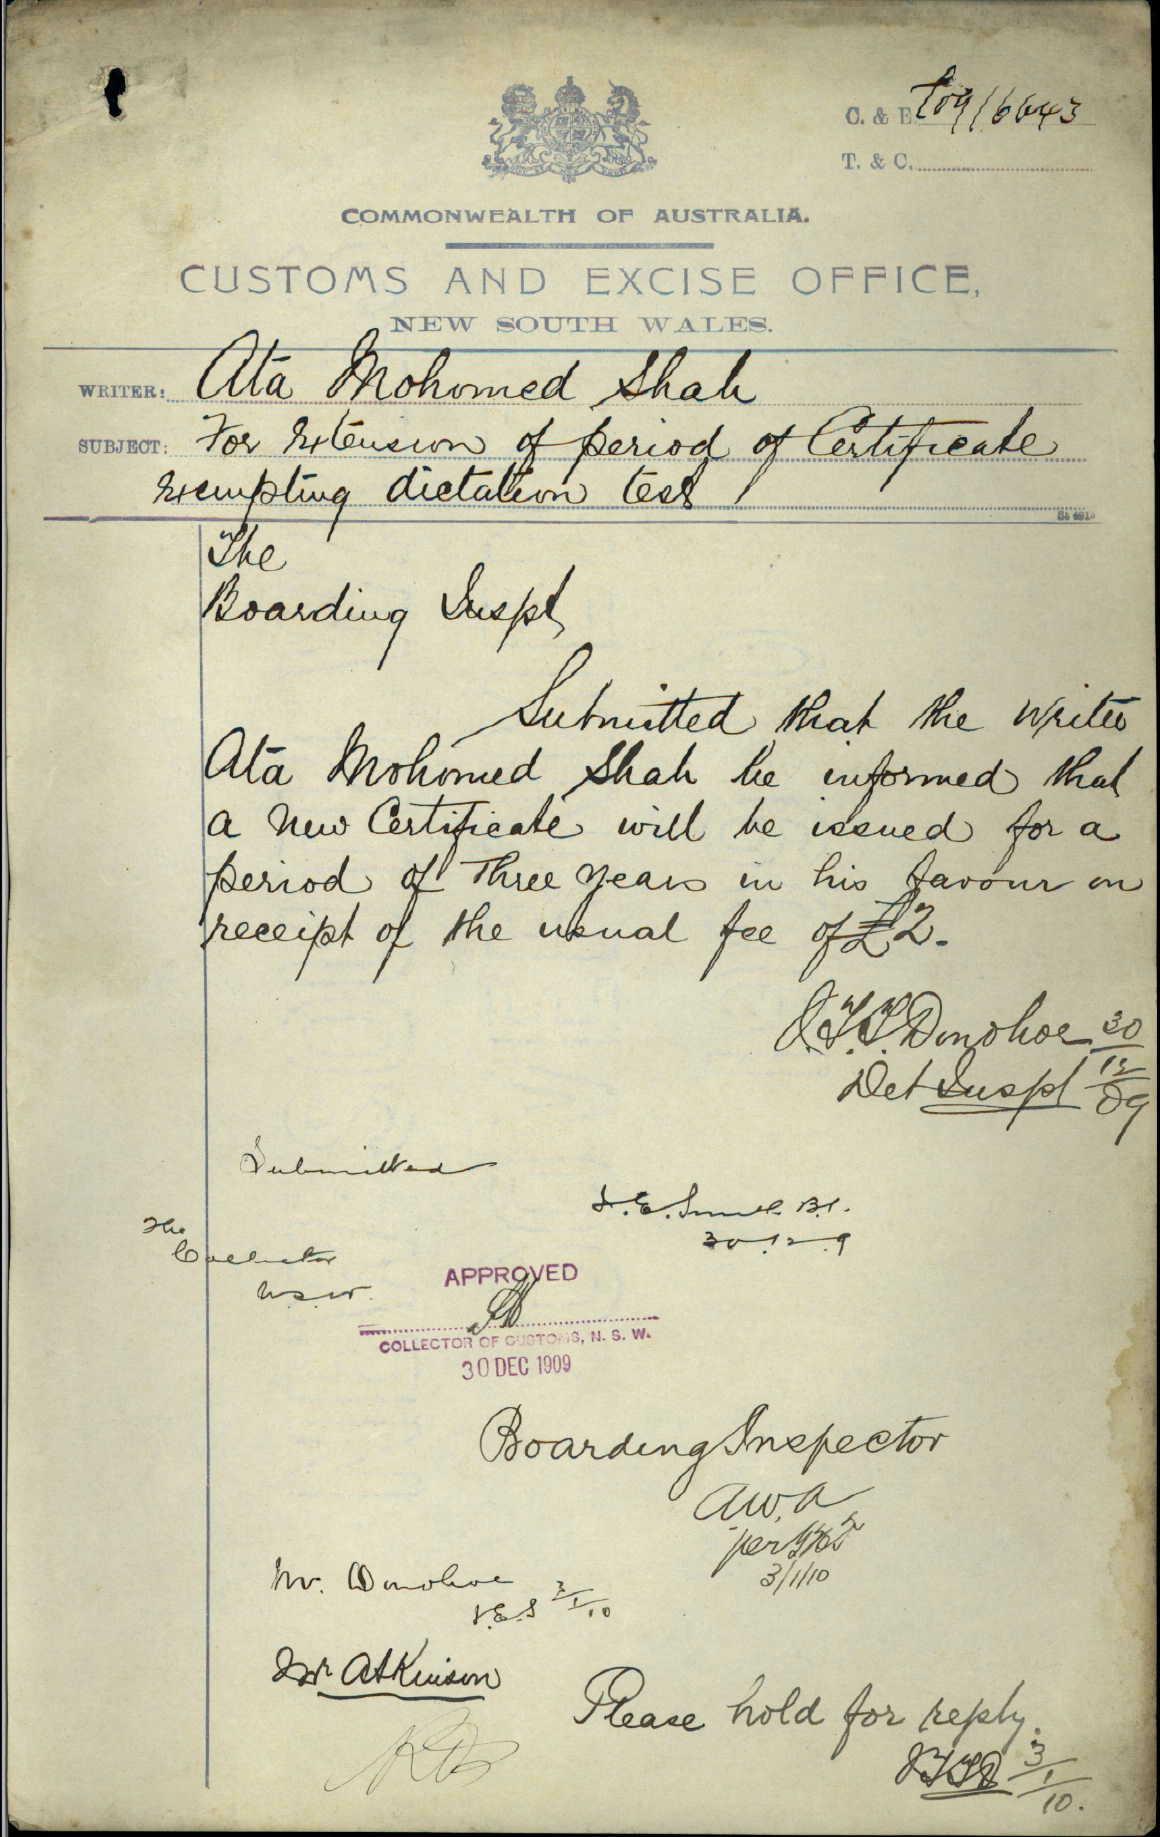 C. & E. 09/16643
T. & C.
COMMONWEALTH OF AUSTRALIA.
CUSTOMS AND EXCISE OFFICE,
NEW SOUTH WALES.
WRITER: Ata Mohomed Shah
SUBJECT: For Extension of period of Certificate
Exempting dictation test
The
Boarding Inspt
Submitted that the writer
Ata Mohomed Shah be informed that
a new Certificate will be issued for a
period of Three years in his favour on
receipt of the usual fee of £2.
J.T.T. Donohoe 30/12/09
Det Inspt
Submitted
30.12.9
The
Collector
N.S.W.
APPROVED
COLLECTOR OF CUSTOMS, N. S. W.
30 DEC 1909
Boarding Inspector
A.W.A
per
3/1/10
Mr. Donohoe
3/1/10
Mr Atkinson
Please hold for reply.
JTTD 3/1/10.